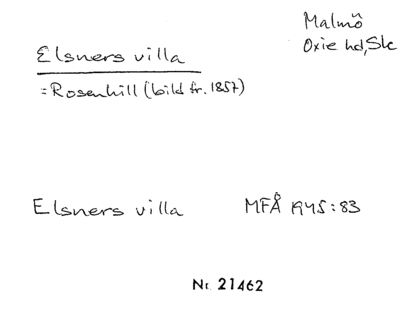 Malmö
Oxie hd, Sk
Elsners villa
= Rosenhill (bild fr. 1857)
Elsners villa MFÅ 1945:83
Nr. 21462